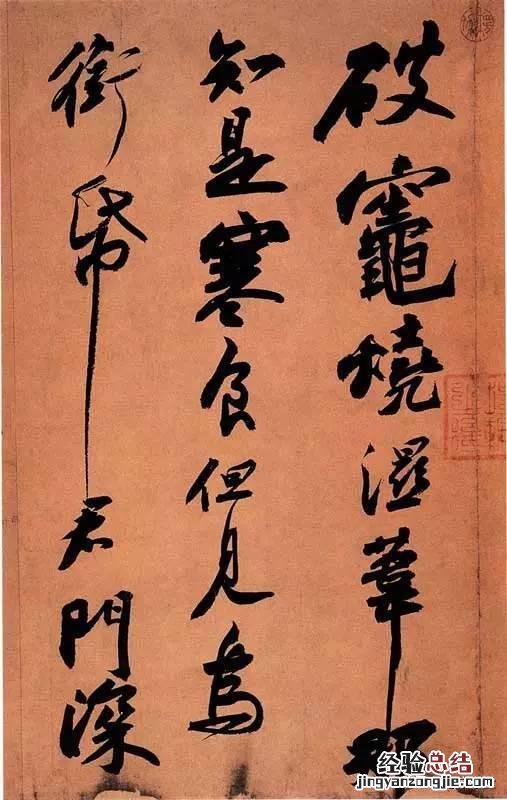 破竈燒濕葦那
知是寒食但見烏
銜帋君門深
经验总结
jingyanzongjie.com